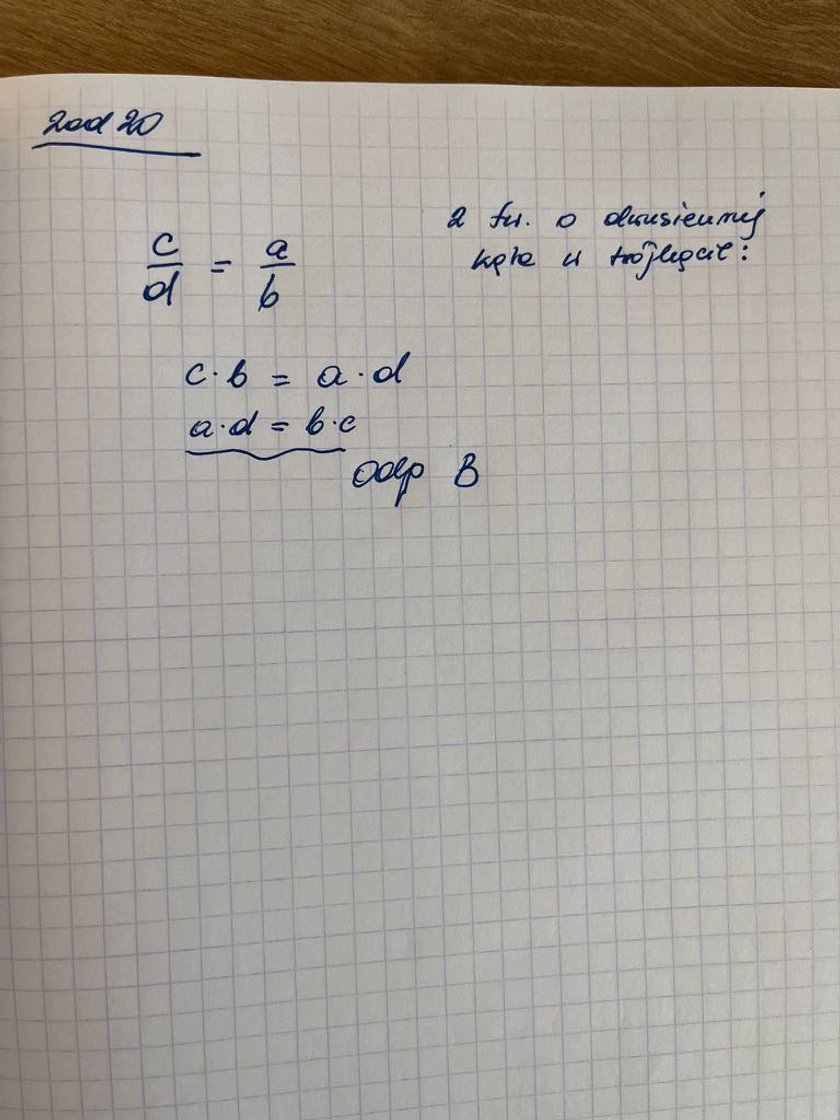 zad 20
z tw. o dwusiecznej
kąta w trójkącie:
c/d = a/b
c·b = a·d
a·d = b·c
Odp B